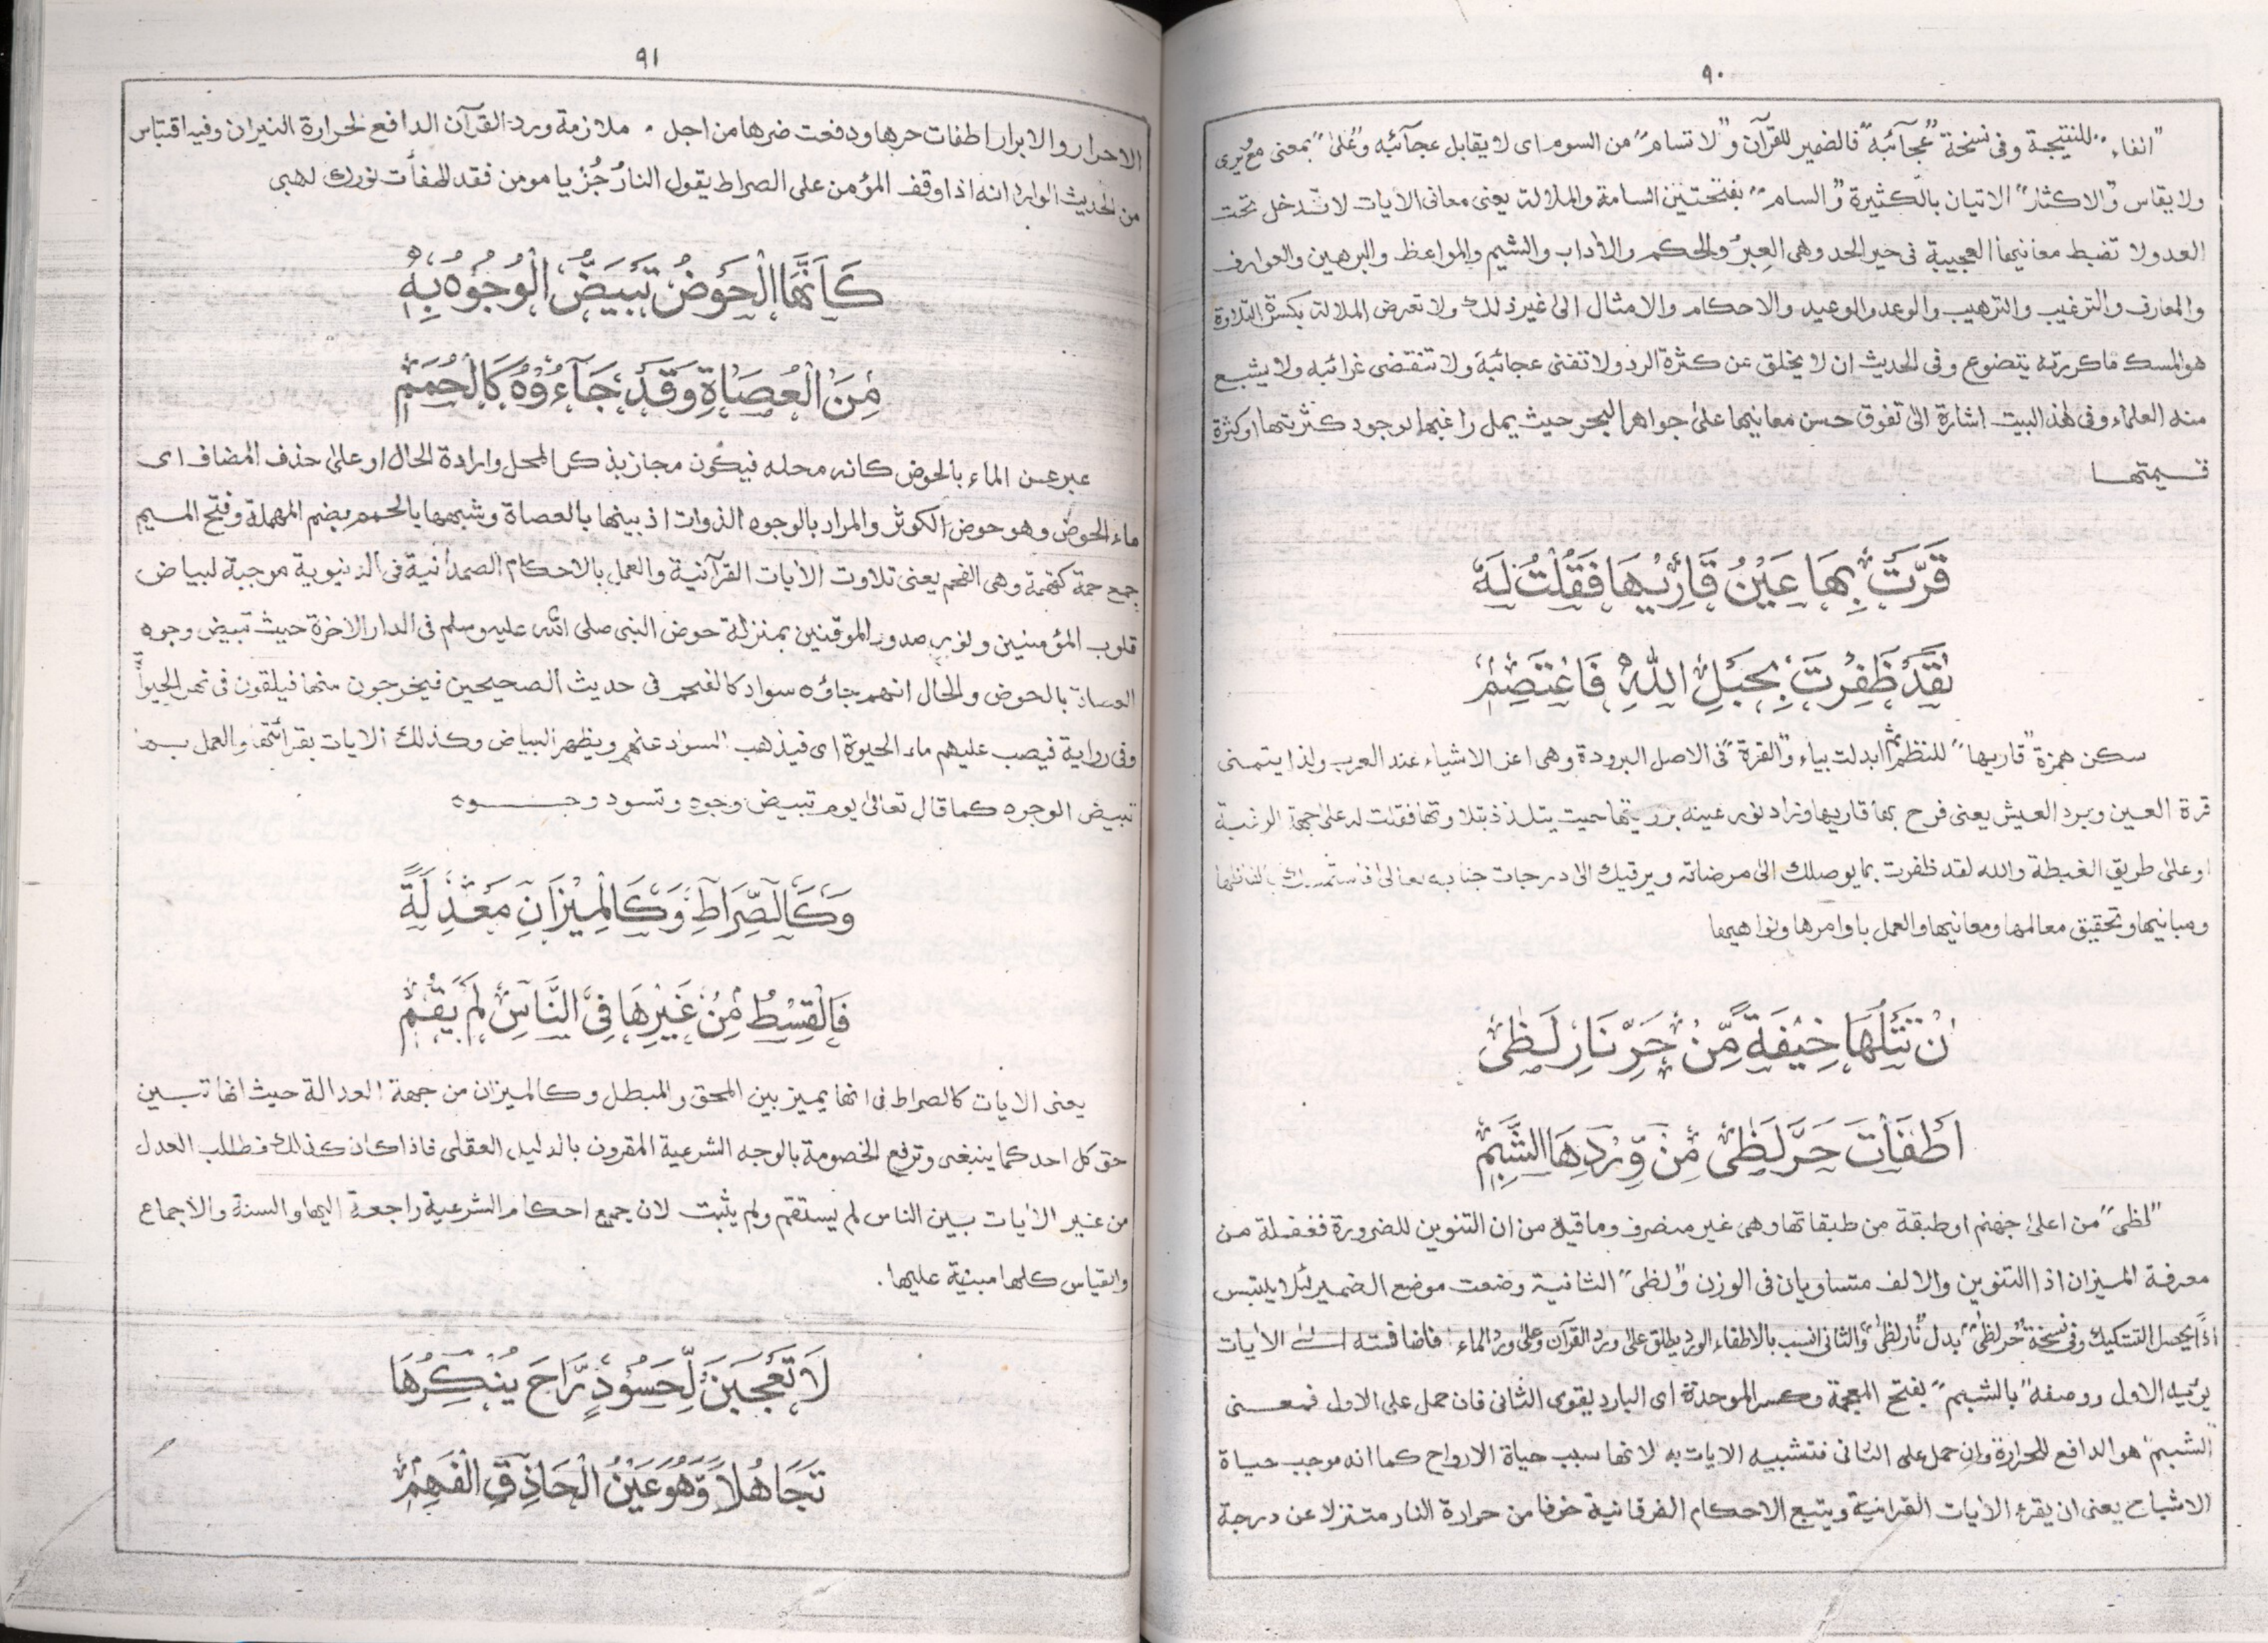 ٩٠
"الفاء" للنتيجة وفى نسخة "عجآئبه" فالضمير للقرآن و"لا تسام" من السوم اى لا يقابل عجآئبه و"على" بمعنى مع يُرى
ولا يقاس و"الاكثار" الاتيان بالكثيرة و"السام" بفتحتين السامة والملالة يعنى معانى الايات لا تدخل تحت
العد ولا تضبط معانيها العجيبة فى حيز الحد وهى العبر والحكم والاداب والشيم والمواعظ والبرهين والعوارف
والمعارف والترغيب والترهيب والوعد والوعيد والاحكام والامثال الى غير ذلك ولا تعرض الملالة بكسرة التلاوة
هو المسك ما كررته يتضوع وفى الحديث ان لا يخلق عن كثرة الرد ولا تفنى عجائبه ولا تنقضى غرائبه ولا يشبع
منه العلماء وفى هذ البيت اشارة الى تفوق حسن معانيها على جواهر البحر حيث يمل راغبها لوجود كثرتها او كثرة
قيمتها
قَرَّتْ بِهَا عَيْنُ قَارِيْهَا فَقُلْتُ لَهٗ
لَقَدْ ظَفِرْتَ بِحَبْلِ اللّٰهِ فَاعْتَصِمٖ
سكن همزة "قاريها" للنظم ثم ابدلت بياء و"القرة" فى الاصل البرودة وهى اعز الاشياء عند العرب ولذا يتمنى
قرة العين وبرد العيش يعنى فرح بها قاريها وزاد نور عينه برؤيتها حيث يتلذذ بتلاوتها فقلت له على جهة الرغبة
او على طريق الغبطة والله لقد ظفرت بما يوصلك الى مرضاته ويرقيك الى درجات جنابه تعالى فاستمسك بالفاظها
ومبانيها وتحقيق معالمها ومعانيها والعمل باوامرها ونواهيها
اِنْ تَتْلُهَا خِيْفَةً مِّنْ حَرِّ نَارِ لَظٰى
اَطْفَأْتَ حَرَّ لَظٰى مِنْ وِّرْدِهَا الشَّبِمٖ
"لظى" من اعلى جهنم او طبقة من طبقاتها وهى غير منصرف وما قيل من ان التنوين للضرورة فغفلة من
معرفة الميزان اذ التنوين والالف متساويان فى الوزن و"لظى" الثانية وضعت موضع الضمير لئلا يلتبس
اذًا يحصل التسكيك وفى نسخة "حر لظى" بدل "نار لظى" والثانى انسب بالاطفاء الورد يطلق على ورد القرآن وعلى ورد الماء فاضافته الى الآيات
يؤيد الاول ووصفه "بالشبم" بفتح المعجمة وكسر الموحدة اى البارد يقوى الثانى فان حمل على الاول فمعنى
"الشبم" هو الدافع للحرارة وان حمل على الثانى فتشبيه الايات به لانها سبب حياة الارواح كما انه موجب حياة
الاشباح يعنى ان يقرء الايات القرانية ويتبع الاحكام الفرقانية خوفا من حرارة النار متنزلا عن درجة
٩١
الاحرار والابرار اطفات حرها ودفعت ضرها من اجل ملازمة ورد القرآن الدافع لحرارة النيران وفيه اقتباس
من الحديث الوارد انه اذا وقف المؤمن على الصراط يقول النار جُز يا مومن فقد اطفأت نورك لهبى
كَاَنَّهَا الْحَوْضُ تَبْيَضُّ الْوُجُوْهُ بِهٖ
مِنَ الْعُصَاةِ وَقَدْ جَآءُوْهُ كَالْحُمَمٖ
عبر عن الماء بالحوض كانه محله فيكون مجاز بذكر المحل وارادة الحال او على حذف المضاف اى
ماء الحوض وهو حوض الكوثر والمراد بالوجوه الذوات اذ بينها بالعصاة وشبهها بالحمم بضم المهملة وفتح الميم
جمع حمة كفهمة وهى الفحم يعنى تلاوت الآيات القرآنية والعمل بالاحكام الصمدانية فى الدنيوية موجبة لبياض
قلوب المؤمنين ونور صدور الموقنين بمنزلة حوض النبى صلى الله عليه وسلم فى الدار الاخرة حيث تبيض وجوه
العصاة بالحوض والحال انهم جاؤه سواد كالفحم فى حديث الصحيحين فيخرجون منها فيلقون فى نهر الحيوٰة
وفى رواية فيصب عليهم ماء الحيوة اى فيذهب السواد عنهم ويظهر البياض وكذلك الايات بقرائتها والعمل بها
تبييض الوجوه كما قال تعالى يوم تبيض وجوه وتسود وجوه
وَكَالصِّرَاطِ وَكَالْمِيْزَانِ مَعْدِلَةً
فَالْقِسْطُ مِنْ غَيْرِهَا فِى النَّاسِ لَمْ يَقُمٖ
يعنى الايات كالصراط فى انها يميز بين المحق والمبطل وكالميزان من جهة العدالة حيث انها تبين
حق كل احد كما ينبغى وترفع الخصومة بالوجه الشرعية المقرون بالدليل العقلى فاذا كان كذالك فطلب العدل
من غير الآيات بين الناس لم يستقم ولم يثبت لان جميع احكام الشرعية راجعة اليها والسنة والاجماع
والقياس كلها مبنية عليها.
لَا تَعْجَبَنْ لِّحَسُوْدٍ رَّاحَ يُنْكِرُهَا
تَجَاهُلًا وَّهُوَ عَيْنُ الْحَاذِقِ الْفَهِمٖ